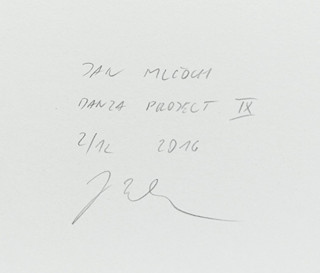 JAN MLČOCH
DANZA PROJECT IX
2/12 2016